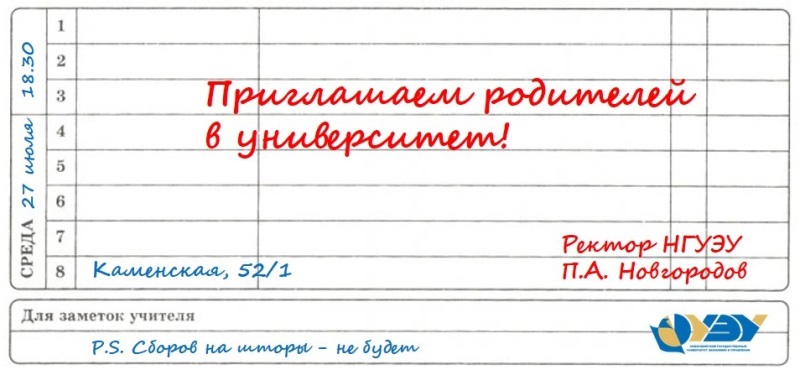 1
2
3
4
5
6
7
8
СРЕДА 27 июля 18.30
Приглашаем родителей
в университет!
Ректор НГУЭУ
П.А. Новгородов
Каменская, 52/1
Для заметок учителя
P.S. Сборов на шторы - не будет
НГУЭУ
НОВОСИБИРСКИЙ ГОСУДАРСТВЕННЫЙ
УНИВЕРСИТЕТ ЭКОНОМИКИ И УПРАВЛЕНИЯ